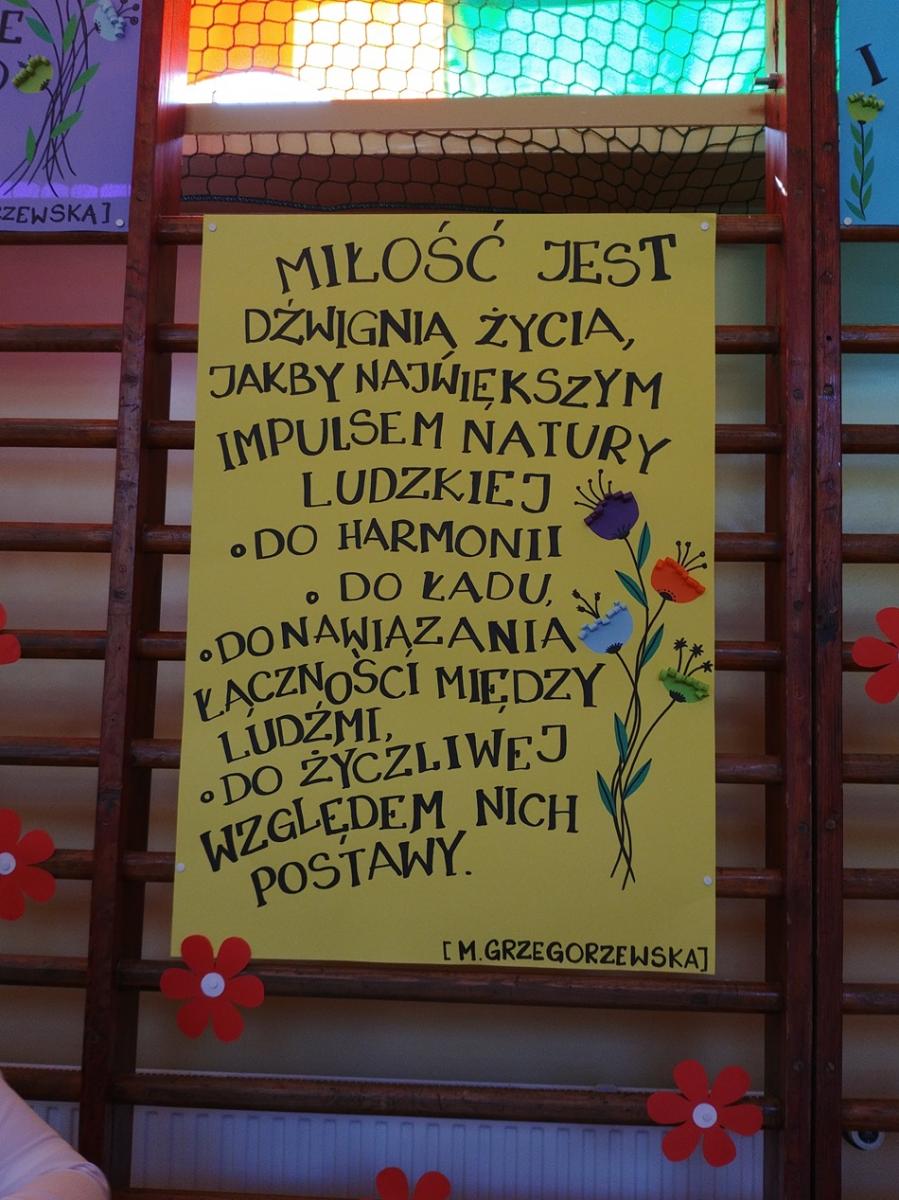 E
RZEWSKA]
I
MIŁOŚĆ JEST
DŹWIGNIĄ ŻYCIA,
JAKBY NAJWIĘKSZYM
IMPULSEM NATURY
LUDZKIEJ
DO HARMONII
DO ŁADU,
DO NAWIĄZANIA
ŁĄCZNOŚCI MIĘDZY
LUDŹMI,
DO ŻYCZLIWEJ
WZGLĘDEM NICH
POSTAWY.
[M.GRZEGORZEWSKA]